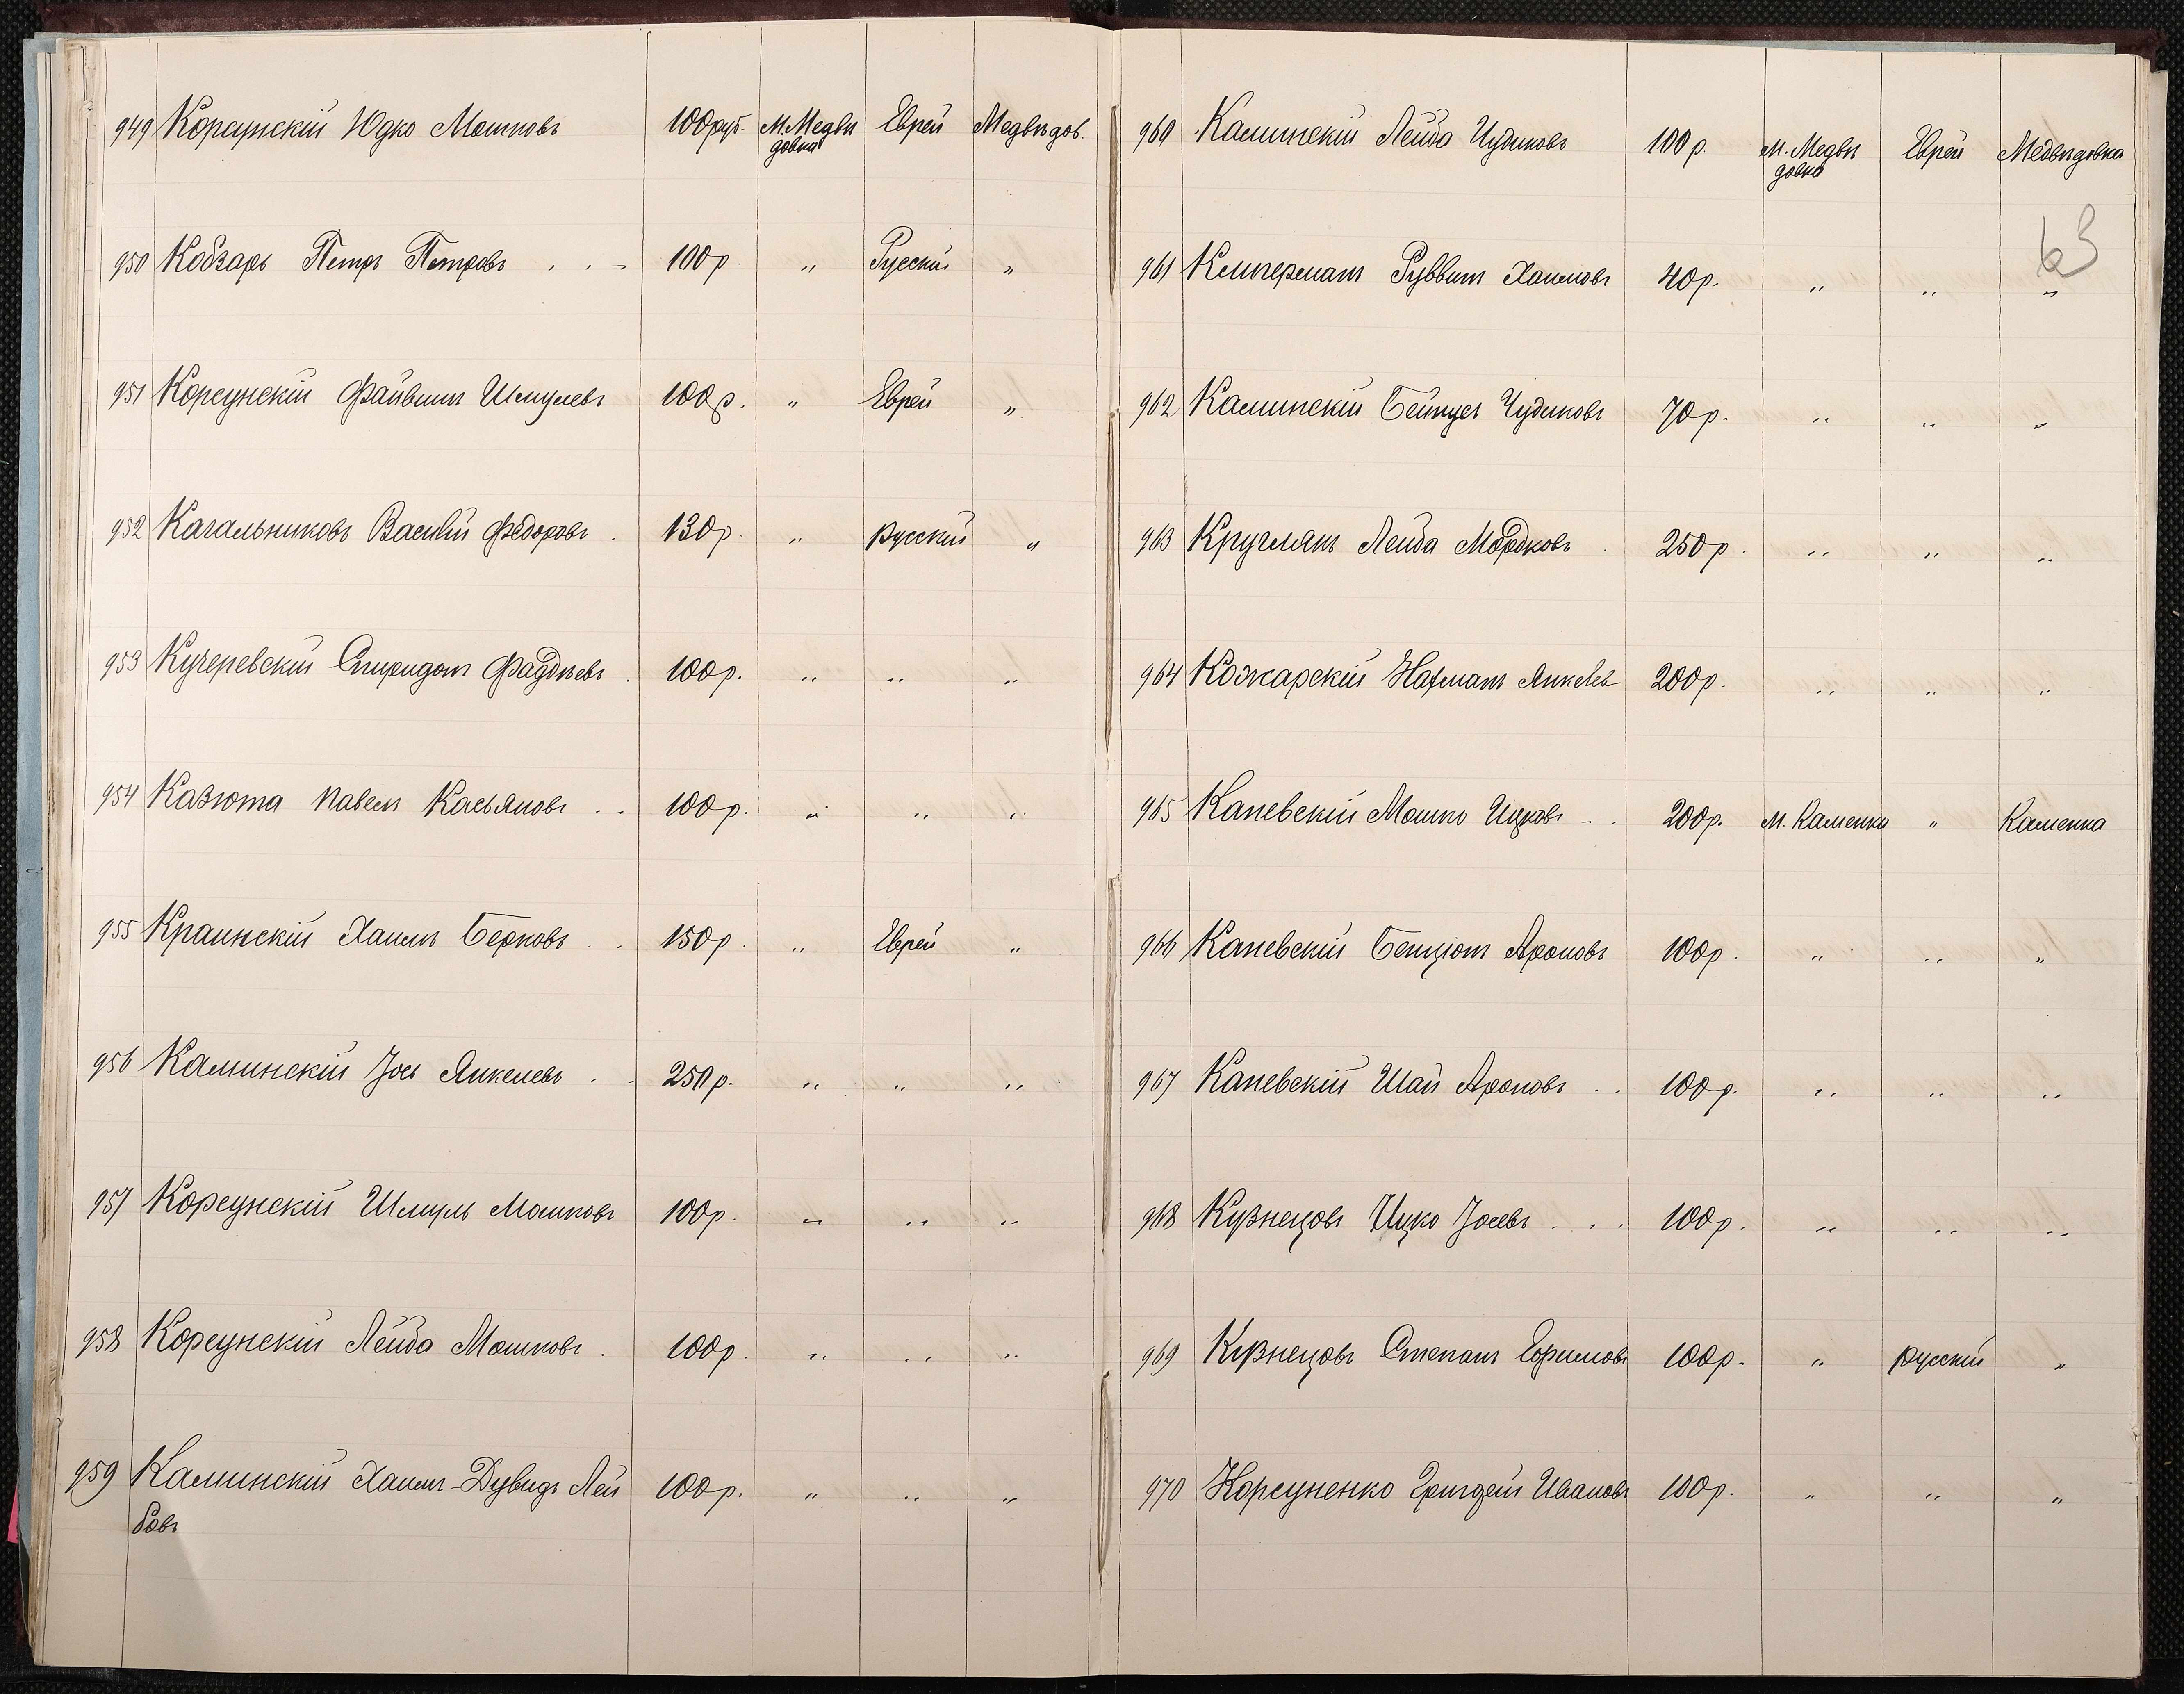 949 Корсунскій Юдко Мошковъ 100 руб. м. Медвѣ Еврей Медвѣдов.
довка
950 Кобзарь Петръ Петровъ . . - 100 р. " Русскій "
951 Корсунскій Файвишъ Шмулевъ 100 р. " Еврей "
952 Кагальниковъ Василій Федоровъ . 130 р. " русскій "
953 Кучеревскій Спиридонъ Фаддѣевъ . 100 р. " " "
954 Казюта Павелъ Касьяновъ . . 100 р. " " "
955 Краинскій Хаимъ Берковъ . . 150 р. " Еврей "
956 Каминскій Іосъ Янкелевъ . . 250 р. " " "
957 Корсунскій Шмуль Мошковъ 100 р. " " "
958 Корсунскій Лейба Мошковъ . 100 р. " " "
959 Каминскій Хаимъ-Дувидъ Лей 100 р. " " "
бовъ
960 Каминскій Лейба Чудиковъ 100 р. м. Медвѣ Еврей Медвѣдовка
довка
63
961 Клигерманъ Руввинъ Хаимовъ 40 р. " " "
962 Каминскій Бейнусъ Чудиковъ 70 р. " " "
963 Кругляхъ Лейба Мордковъ . 250 р. " " "
964 Кожарскій Нахманъ Янкелев 200 р. " " "
965 Каневскій Мошко Ицковъ - . 200 р. м. Каменка " Каменка
966 Каневскій Бенціонъ Ароновъ 100 р. " " "
967 Каневскій Шая Ароновъ . . 100 р. " " "
968 Кузнецовъ Ицко Іосевъ . . . 100 р. " " "
969 Кузнецовъ Степанъ Ефимовъ 100 р. " русскій "
970 Корсуненко Григорій Ивановъ 100 р. " " "